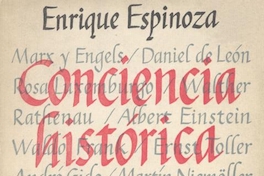 Enrique Espinoza
Marx y Engels / Daniel de León
Conciencia
Rosa Luxemburgo / Walther
Rathenau / Albert Einstein
histórica
Waldo Frank / Ernst Toller
Andre Gide / Martin Niemöller